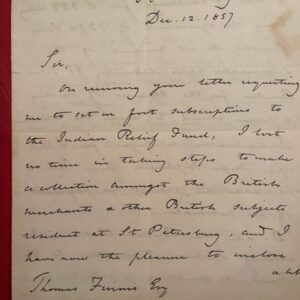 Dec. 12. 1857
Sir,
On receiving your letter requesting
me to set on foot subscriptions to
the Indian Relief Fund, I lost
no time in taking steps to make
a collection amongst the British
merchants & other British subjects
resident at St Petersburg, and I
have now the pleasure to enclose
a
Thomas Esq